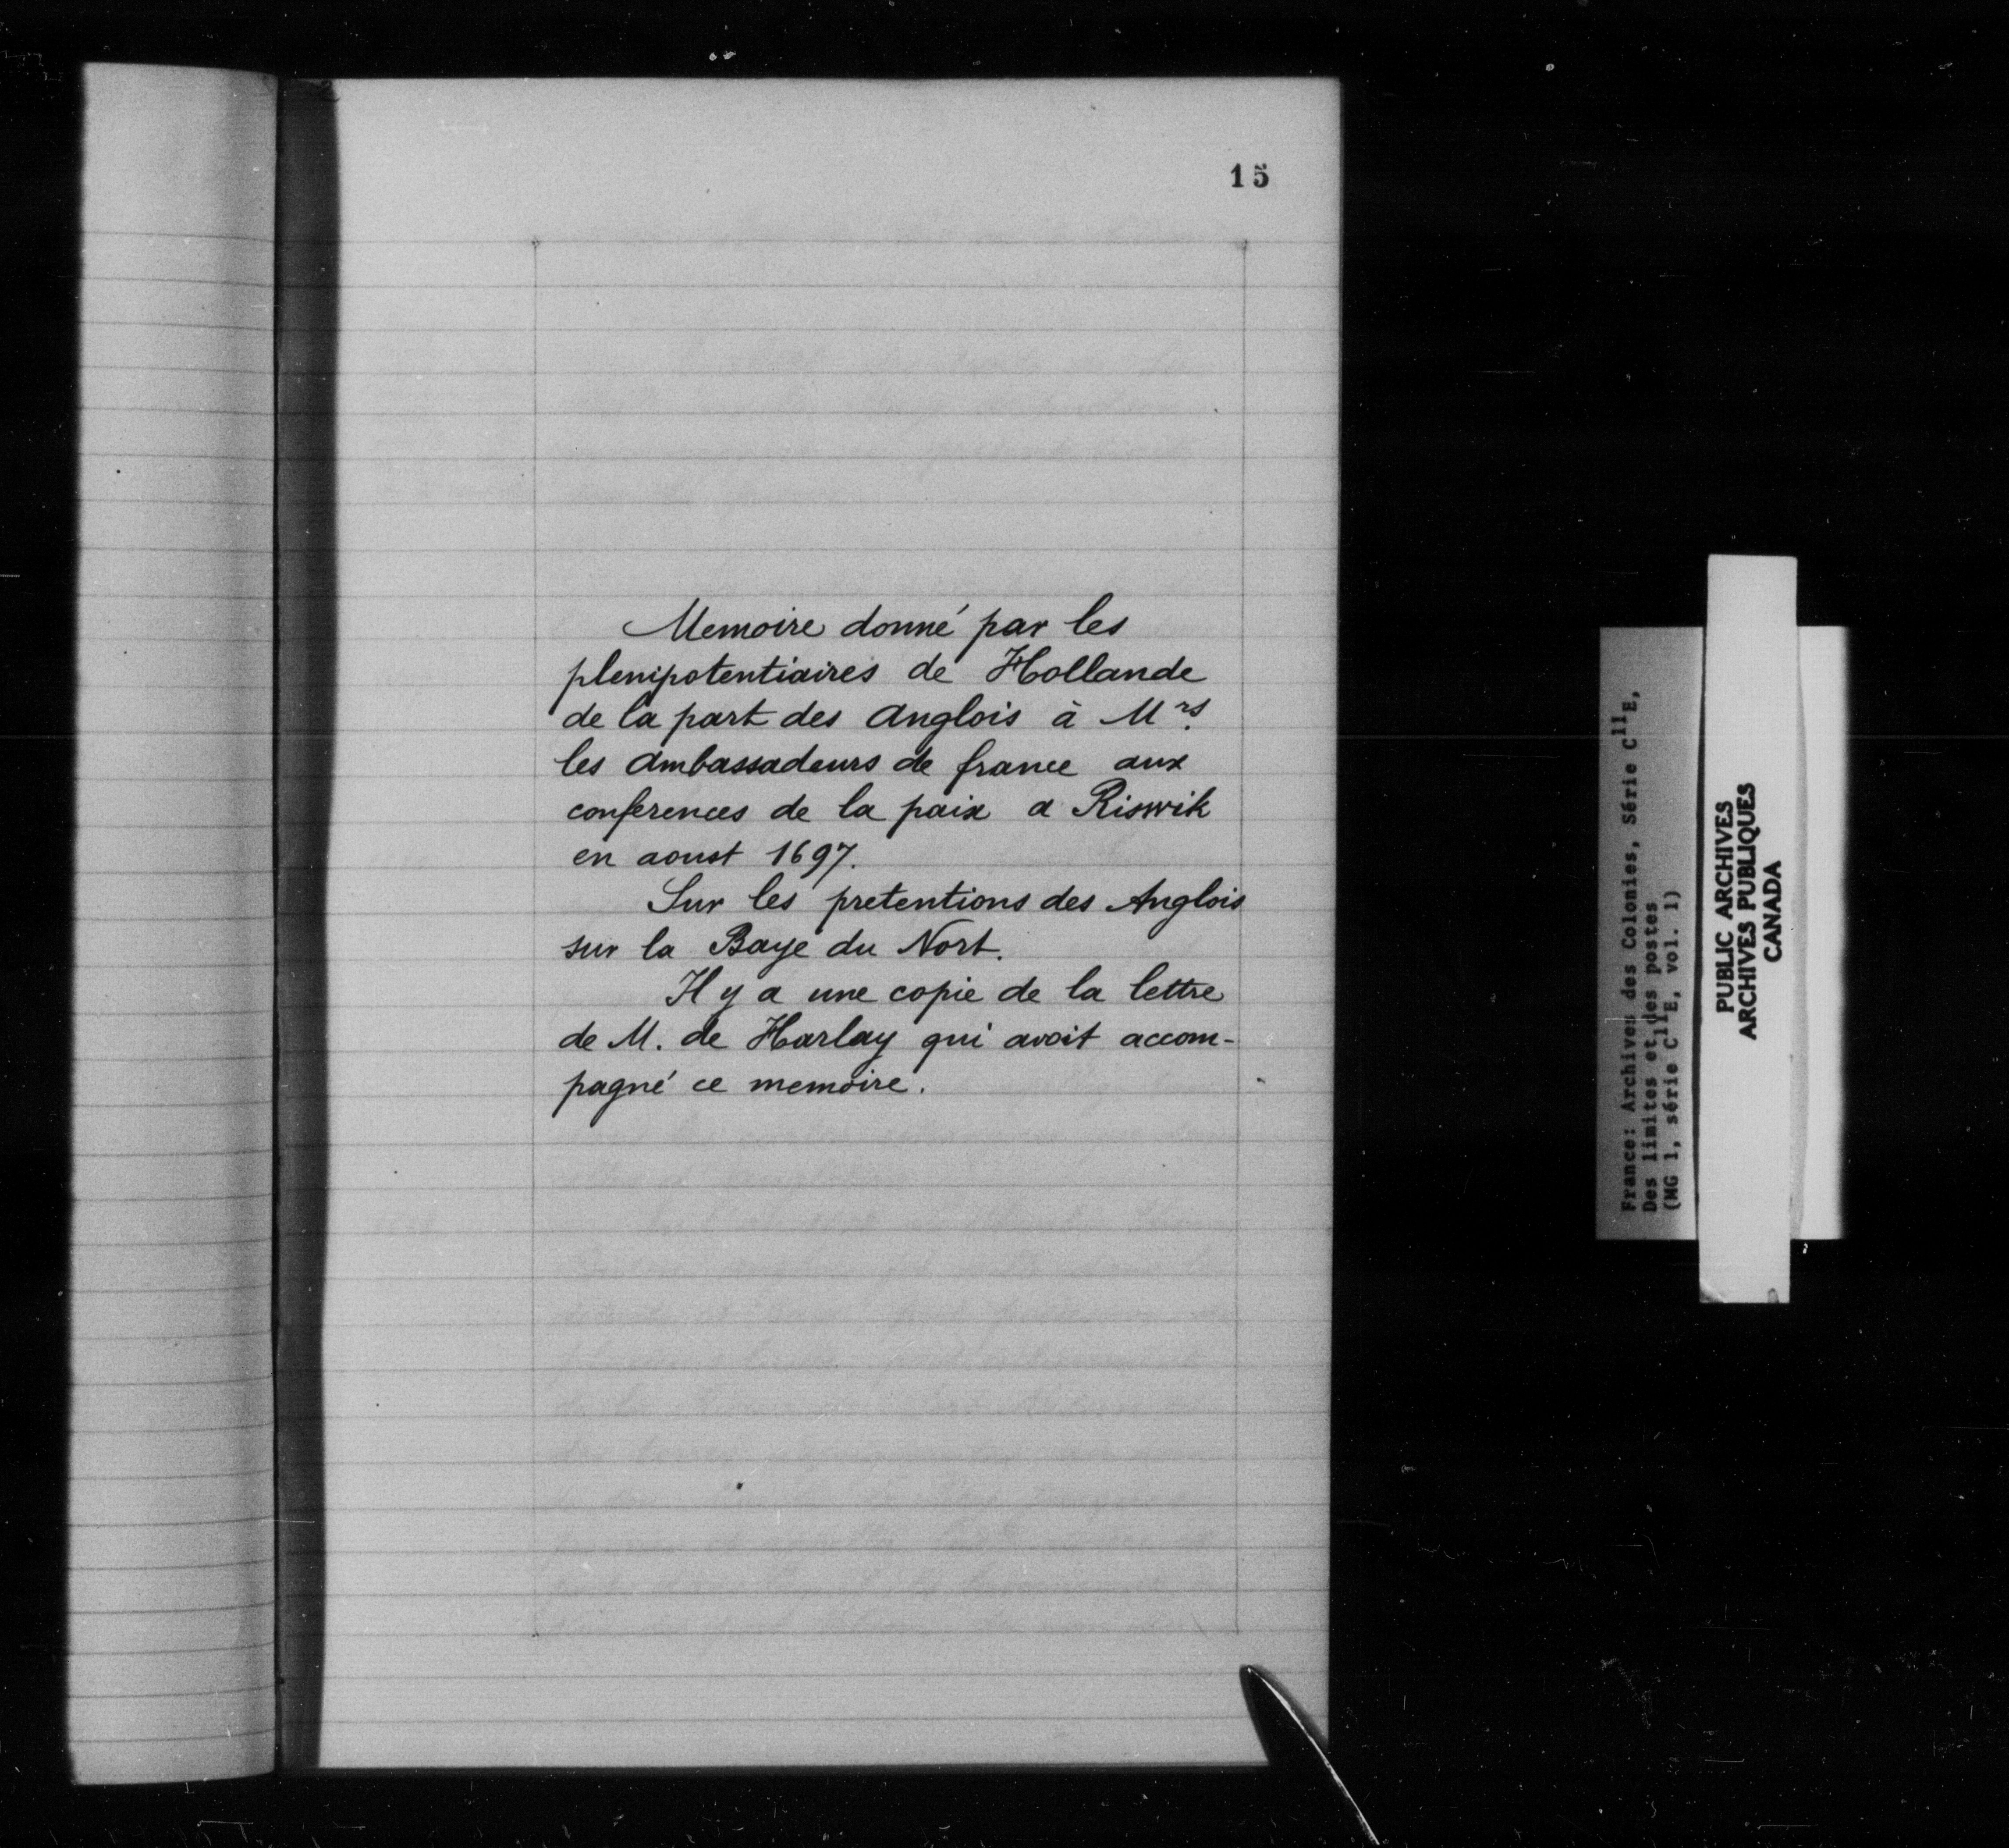 15
Memoire donné par les
plenipotentiaires de Hollande
de la part des Anglois à Mrs.
les Ambassadeurs de france aux
conferences de la paix a Riswik
en aoust 1697.
Sur les pretentions des Anglois
sur la Baye du Nort.
Il y a une copie de la lettre
de M. de Harlay qui avoit accom-
pagné ce memoire.
France: Archives des Colonies, Série C11E,
Des limites et des postes
(MG 1, série C11E, vol. 1)
PUBLIC ARCHIVES
ARCHIVES PUBLIQUES
CANADA